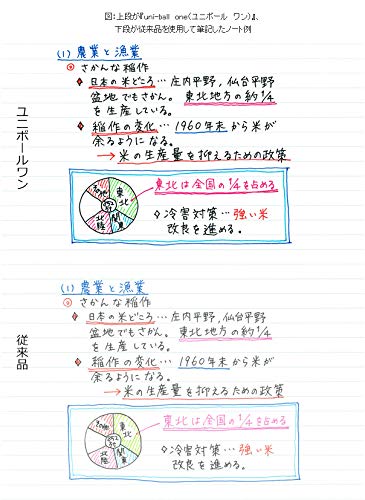 図:上段が『uni-ball one(ユニボール ワン)』、
下段が従来品を使用して筆記したノート例
ユニボールワン
(1) 農業と漁業
さかんな稲作
日本の米どころ… 庄内平野, 仙台平野
盆地でもさかん。東北地方の約1/4
を生産している。
稲作の変化… 1960年末から米が
余るようになる。
→米の生産量を抑えるための政策
その他
東北
関東
北陸
東北は全国の1/4を占める
◇冷害対策…強い米
改良を進める。
従来品
(1) 農業と漁業
さかんな稲作
日本の米どころ… 庄内平野, 仙台平野
盆地でもさかん。東北地方の約1/4
を生産している。
稲作の変化… 1960年末から米が
余るようになる。
→米の生産量を抑えるための政策
その他
東北
関東
北陸
東北は全国の1/4を占める
◇冷害対策…強い米
改良を進める。